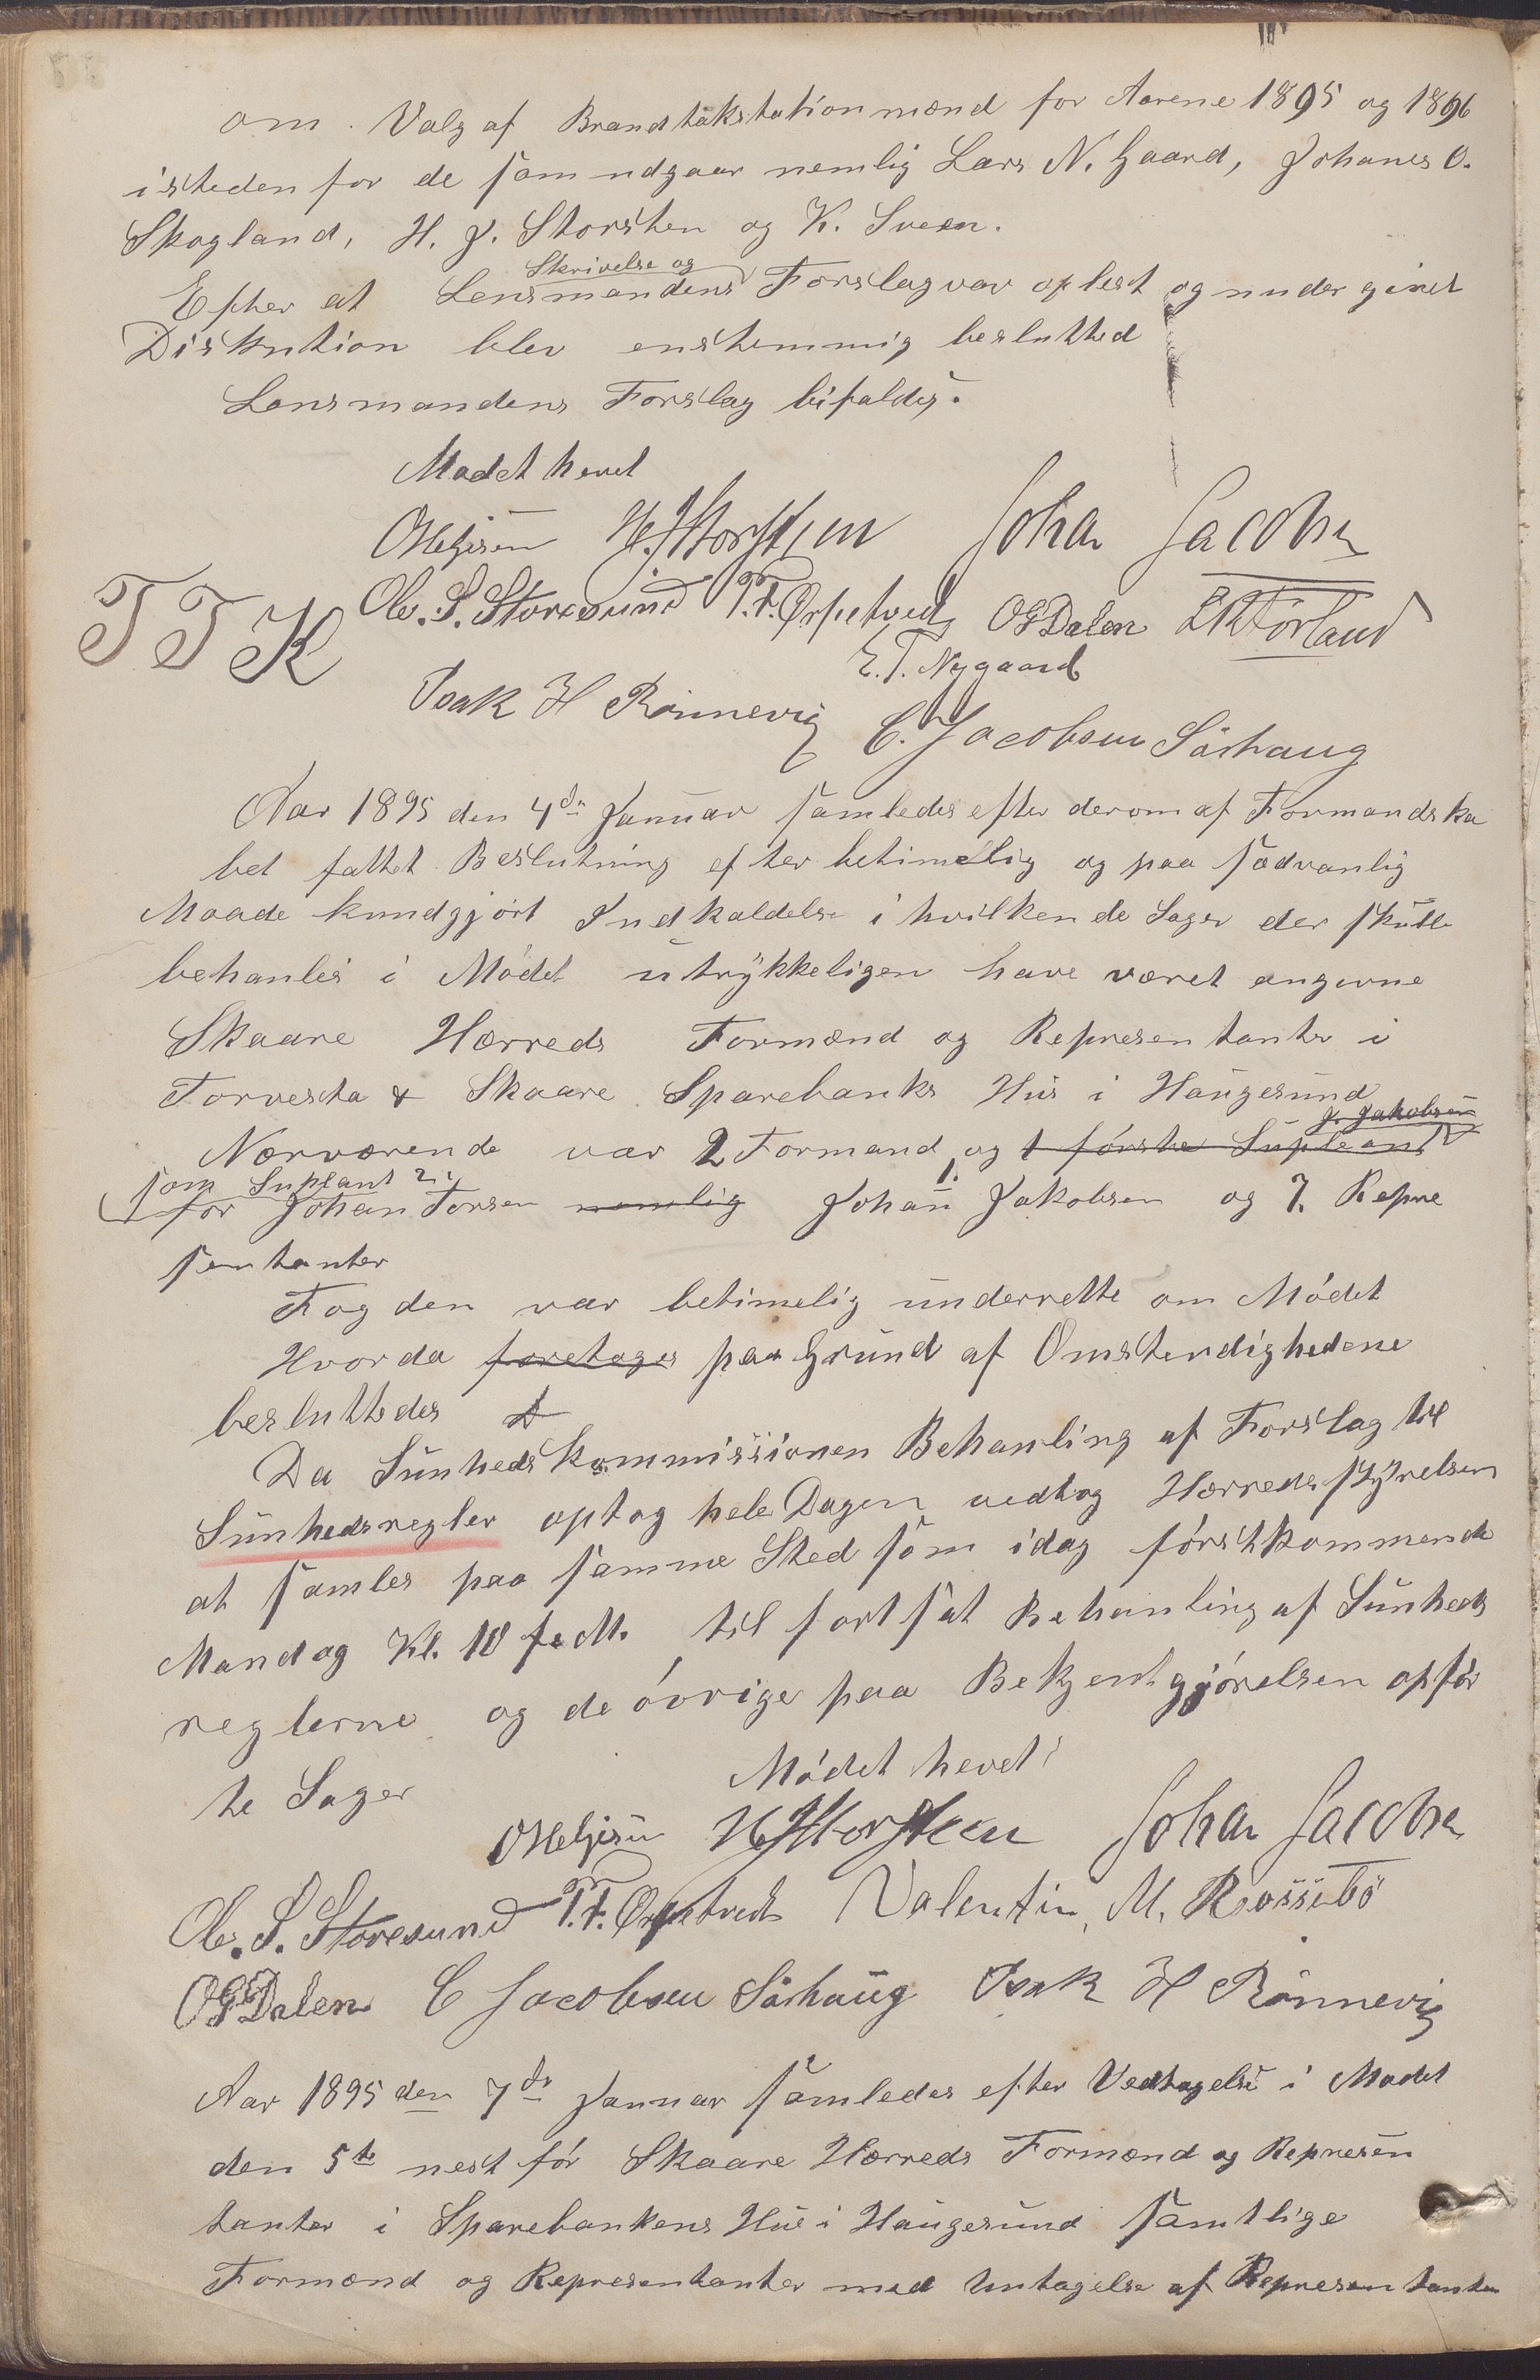 om. Valg af Brandtakstationmænd for Aarene 1895 og 1896
isteden for de som udgaar nemlig Lars N. Gaard, Johanes O.
Skogland, H. J. Storsten og K. Sveen.
Skrivelse og
Efter at Lensmandens Forslag var oplest og under givet
Diskution blev enstemmig beslutted
Lensmandens Forslag bifaldes.
Mødet hevet
OHelgesen H. J. Storsten Johan Jacobsen
TTK
Ole. S. Storesund T. T. Ørpetvedt OGDalen Førland
E. T. Nygaard
Isak H Rönnevig C. Jacobsen Sörhaug
Aar 1895 den 4de Januar samledes efter derom af Formandska
bet fattet Beslutning efter betimelig og paa sædvanlig
Maade kundgjort Indkaldelse i hvilken de Sager der skulle
behanles i Mødet utrykkeligen have været angivne
Skaare Herreds Formænd og Representanter i
Torvesta & Skaare Sparebanks Hus i Haugesund
J. Jakobsen
Nærværende var 2 Formænd og 1 förste Supleant
som Suplant
for Johan Torsen nemlig Johan Jakobsen og 7. Repre
sentanter
Fogden var betimelig underrette om Mödet
Hvorda foretoges paa Grund af Omstendighedene
besluttedes
Da Sunhedskommissionen Behanling af Forslag til
Sunhedsregler optog hele Dagen vedtog Herredsstyrelsen
at samles paa samme Sted som idag förstkommende
Mandag Kl. 10 f. M. til fortsat Behanling af Sunheds
reglerne og de övrige paa Bekjentgjörelsen opför
te Sager
Mödet hevet
OHelgesen H. J. Storsten Johan Jacobsen
Ole. S. Storesund T. T. Ørpetvedt Valentin M. Rossebö
OGDalen C Jacobsen Sörhaug Isak H Rönnevig
Aar 1895 den 7de Januar samledes efter Vedtagelse i Mødet
den 5te nest för Skaare Herreds Formænd og Represen
tanter i Sparebankens Hus i Haugesund samtlige
Formænd og Representanter med Untagelse af Representanten